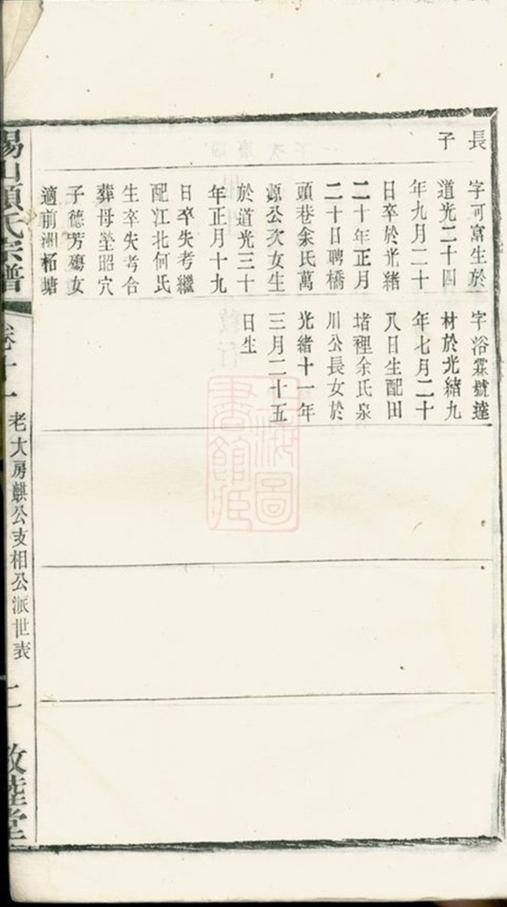 長子
字可富生於
道光二十四
年九月二十
日卒於光緒
二十年正月
二十日聘橋
頭巷余氏萬
源公次女生
於道光三十
年正月十九
日卒失考繼
配江北何氏
生卒失考合
葬母塋昭穴
子德芳殤女
適前洲栢塘
字浴霖號達
材於光緒九
年七月二十
八日生配田
堵裡余氏泉
川公長女於
光緒十一年
三月二十五
日生
錫山氏宗譜
卷十一
老大房麒公支相公派世表
二
敦睦堂
上海圖書館藏